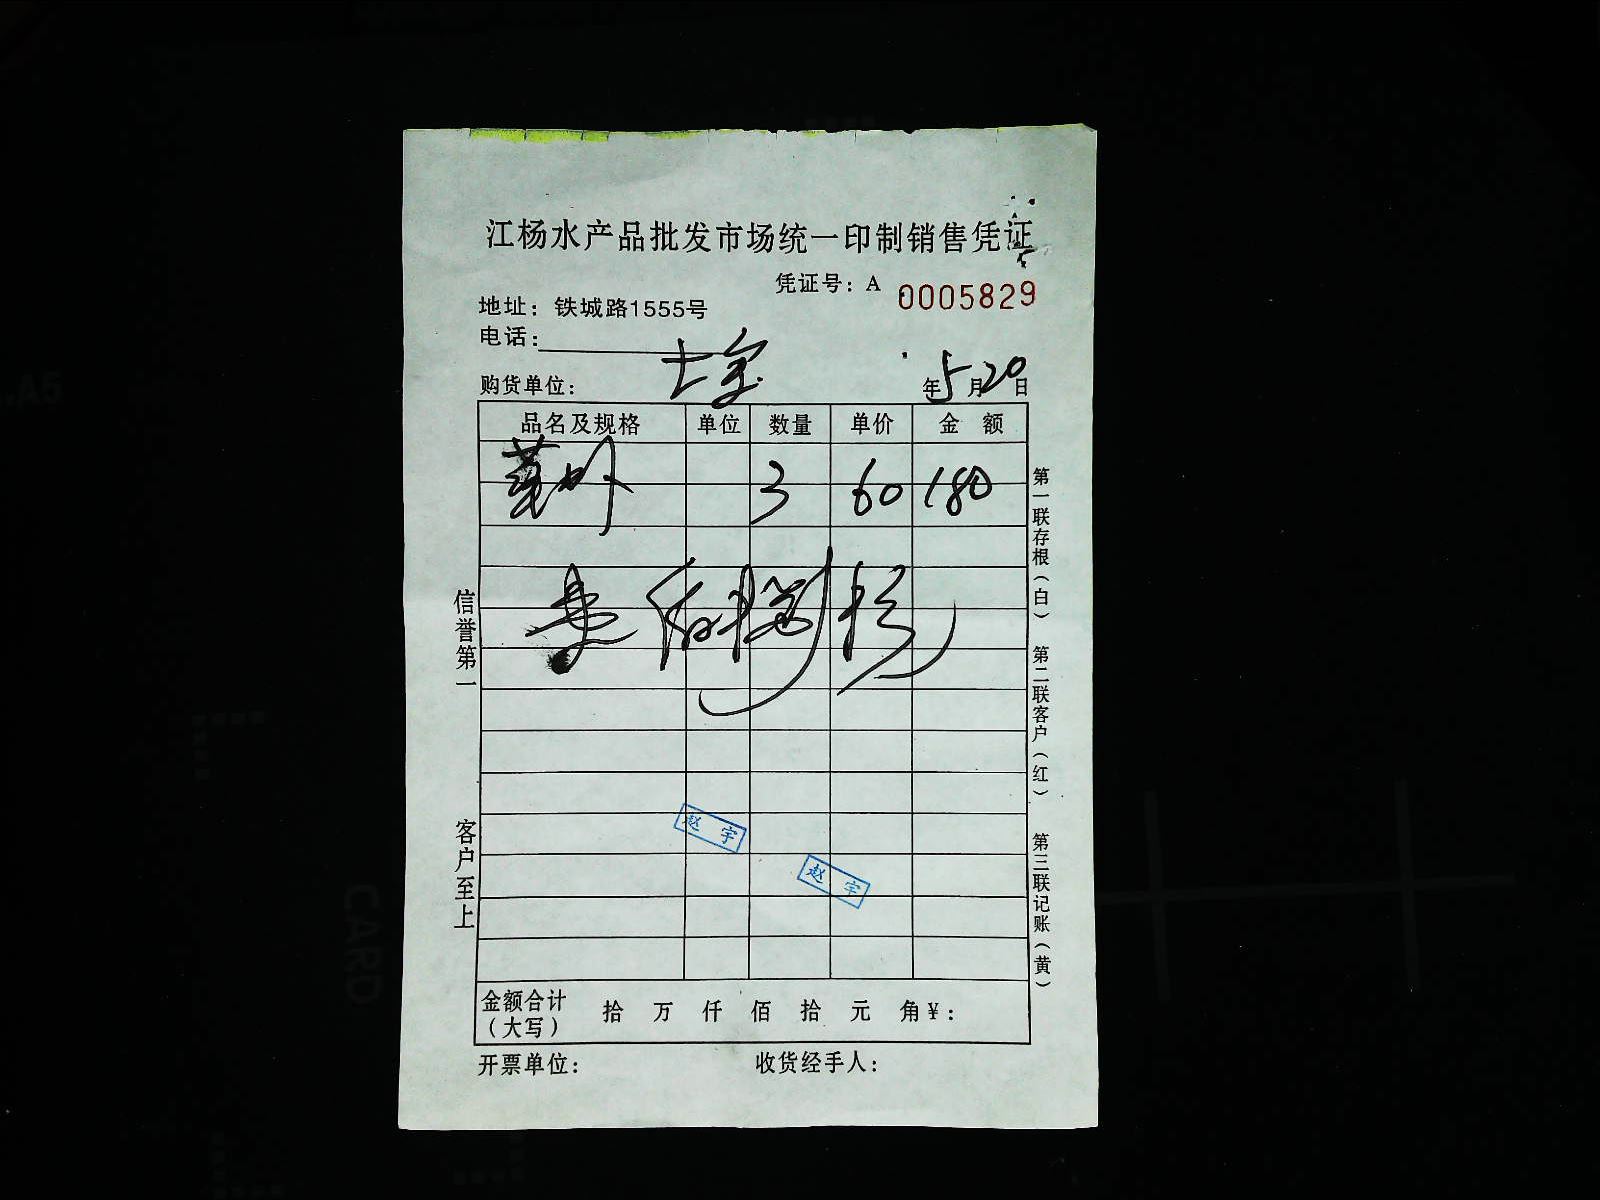 江杨水产品批发市场统一印制销售凭证
凭证号：A 0005829
地址：铁城路1555号
电话：
购货单位：
年5月20日
品名及规格 单位 数量 单价 金 额
3 60 180
壹佰捌拾
赵 宇
赵 宇
金额合计（大写） 拾 万 仟 佰 拾 元 角 ¥：
开票单位： 收货经手人：
信誉第一 客户至上
第一联存根（白） 第二联客户（红） 第三联记账（黄）
CARD
A5